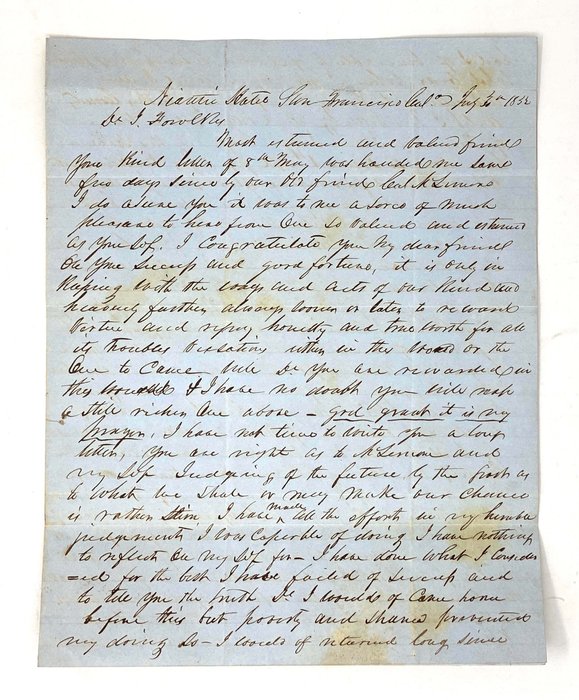 Niantic Hotel San Francisco Cal^a July 1852
Dr J. Fowlkes
Most esteemed and valued friend
Your kind letter of 8th May was handed me some
few days since by our old friend Col McLemore
I do asure you it was to me a sorce of much
pleasure to hear from one so valued and esteemed
as your self. I congratulate you my dear friend
on your success and good fortune, it is only in
keeping with the ways and acts of our kind and
heavenly father always sooner or later to reward
virtue and repay honesty and true worth for all
its troubles vexations either in this world or the
one to come. Well Dr you are rewarded in
this world & I have no doubt you will reap
a still richer one above – god grant it is my
prayer, I have not time to write you a long
letter, you are right as to McLemore and
my self Judgeing of the future by the past as
to what we shall or may make our chance
is rather slim I have made all the efforts in my humble
judgement I was capable of doing I have nothing
to reflect on my self for – I have done what I consider
=ed for the best I have failed of success and
to tell you the truth Dr I would of came home
before this but poverty and shame prevented
my doing so – I would of returned long since